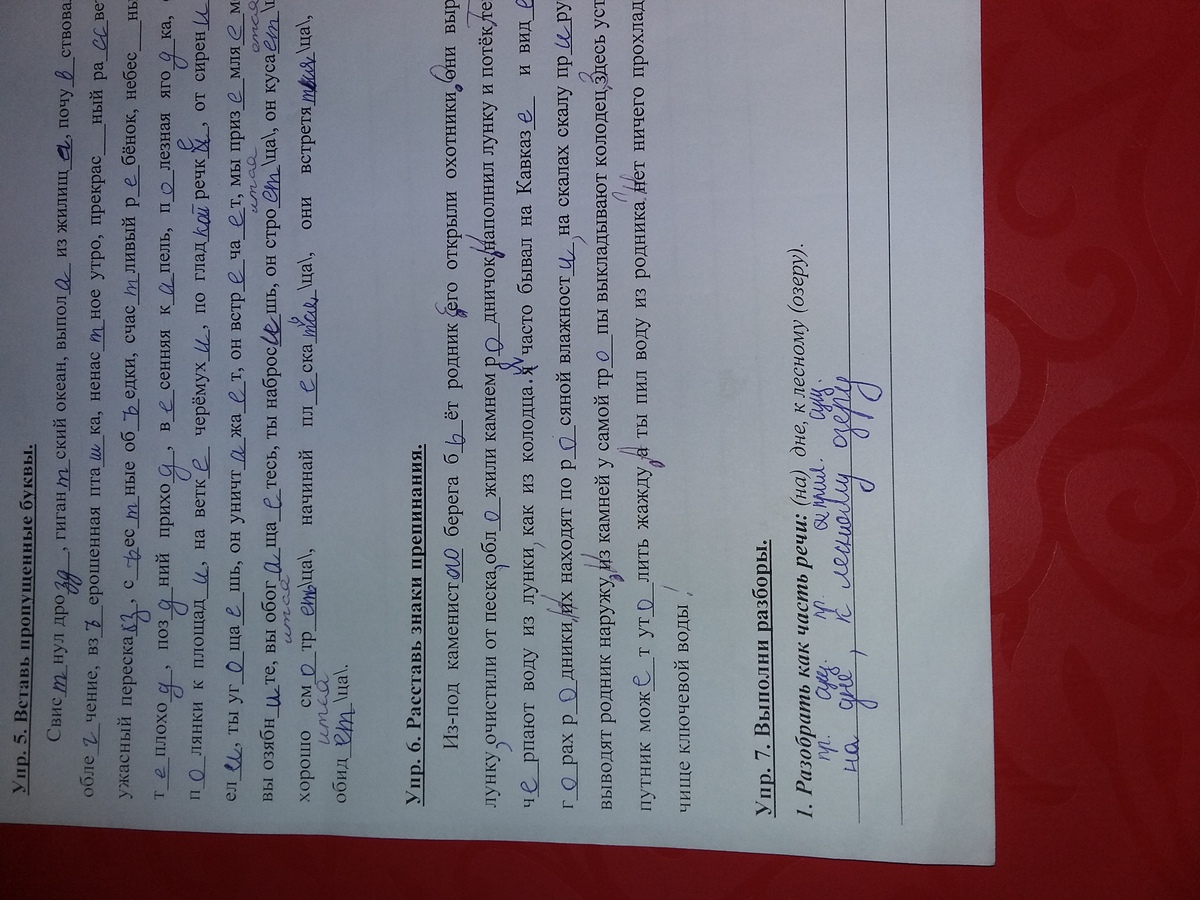 Упр. 5. Вставь пропущенные буквы.
Свис т нул дро зд , гиган т ский океан, выпол а из жилищ а , почу в ствовал
обле г чение, вз ъ ерошенная пта ш ка, ненас т ное утро, прекрас __ ный ра сс вет
ужасный переска з , с т ес т ные об ъ едки, счас т ливый р е бёнок, небес __ ны
т е плохо д , поз д ний прихо д , в е сенняя к а пель, п о лезная яго д ка,
п о лянки к площад и , на ветк е черёмух и , по глад кой речк е , от сирен и
ел и , ты уг о ща е шь, он уничт а жа е т, он встр е ча е т, мы приз е мля е м
вы озябн и те, вы обог а ща е тесь, ты наброс и шь, он стро ет \ца\, он куса ет \ц
хорошо см о тр ет \ца\, начинай пл е ска ться \ца\, они встретя тся \ца\,
обид ет \ца\.
Упр. 6. Расставь знаки препинания.
Из-под каменист ого берега б ь ёт родник его открыли охотники. Они выр
лунку, очистили от песка, обл о жили камнем р о дничок наполнил лунку и потёк
ч е рпают воду из лунки, как из колодца. Я часто бывал на Кавказ е и вид е
г о рах р о дники их находят по р о сяной влажност и , на скалах скалу пр и ру
выводят родник наружу, из камней у самой тр о пы выкладывают колодец. Здесь уст
путник мож е т ут о лить жажду, а ты пил воду из родника нет ничего прохлад
чище ключевой воды!
Упр. 7. Выполни разборы.
1. Разобрать как часть речи: (на) дне, к лесному (озеру).
пр. сущ. пр. прил. сущ.
на дне , к лесному озеру